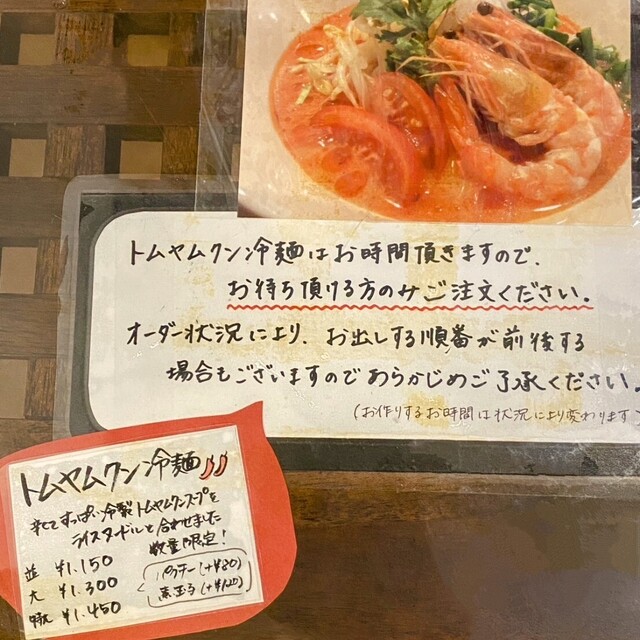 トムヤムクン冷麺はお時間頂きますので、
お待ち頂ける方のみご注文ください。
オーダー状況により、お出しする順番が前後する
場合もございますのであらかじめご了承ください。
(お作りするお時間は状況により変わります
トムヤムクン冷麺
辛くてすっぱい冷製トムヤムクンスープを
ライスヌードルと合わせました
数量限定!
並 ¥1.150
大 ¥1.300
特大 ¥1.450
パクチー(+¥80)
煮玉子(+¥120)